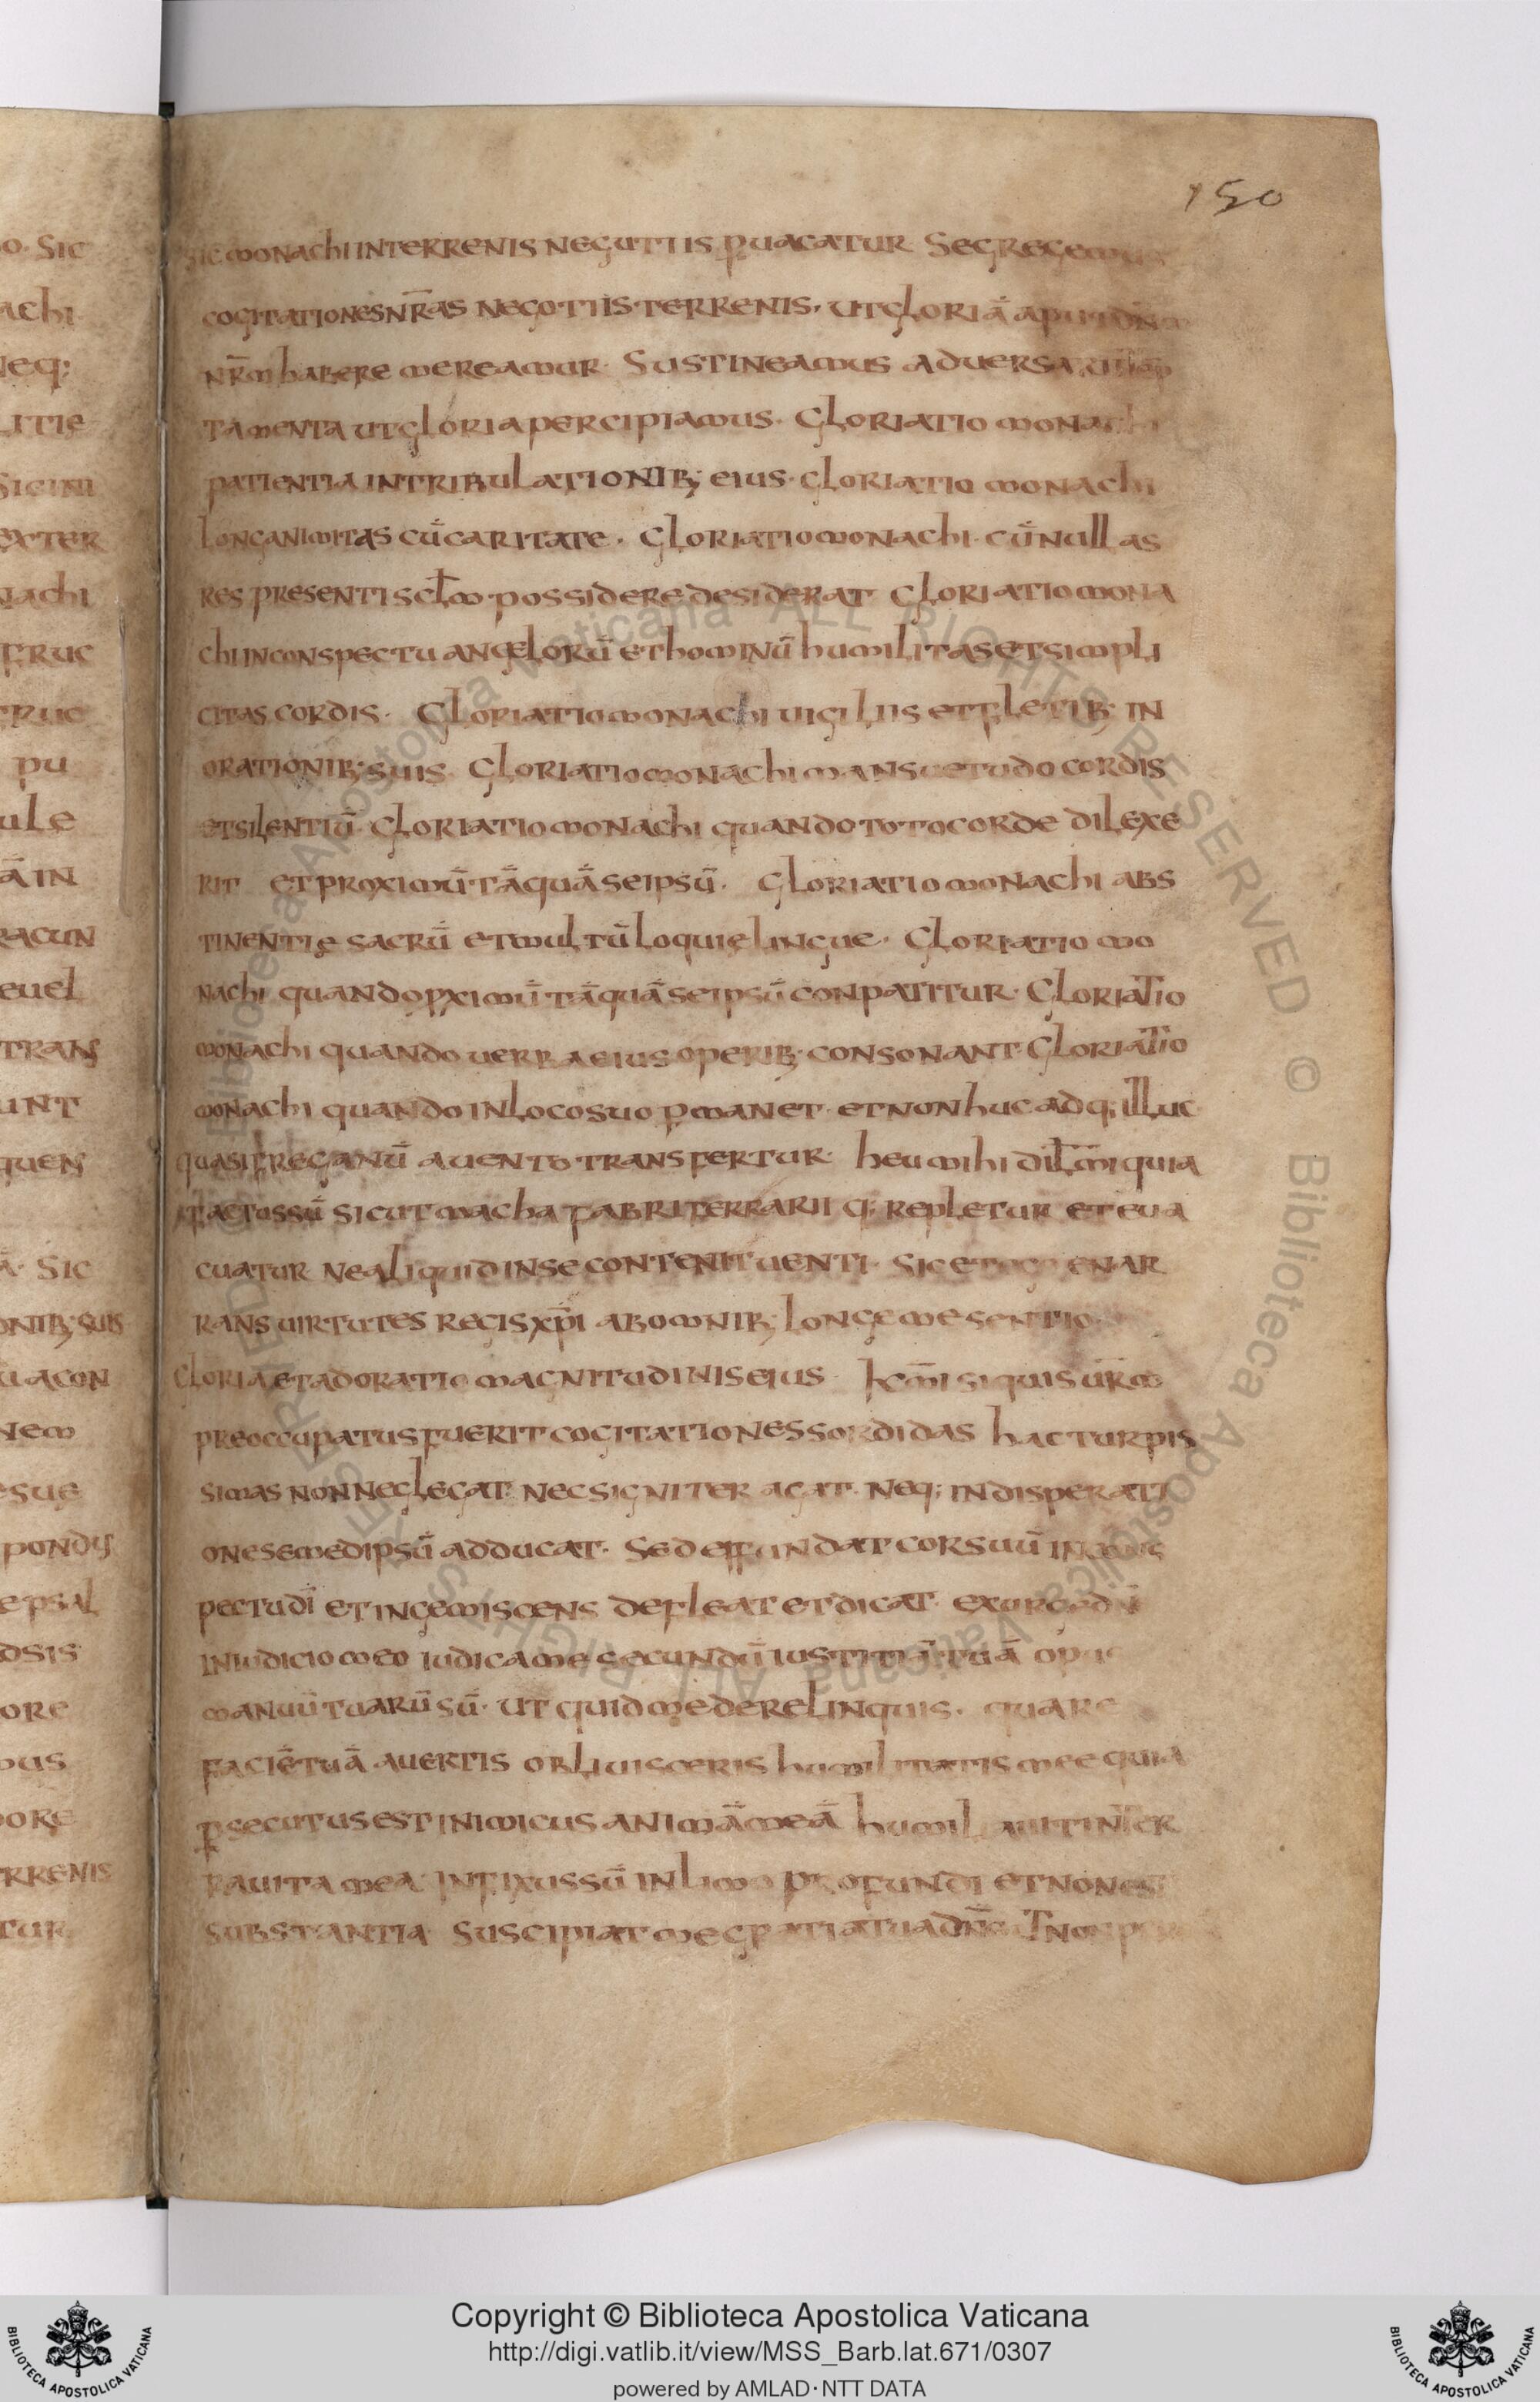 150
sic monachi in terrenis negutiis p̱uacatur Segregem
cogitationes nr̄as negotiis terrenis, ut gloriā aput dn̄m
nr̄m habere mereamur. Sustineamus adversariū
tamenta ut gloria percipiamus. Gloriatio monachi
patientia in tribulationib; eius. Gloriatio monachi
longanimitas cū caritate. Gloriatio monachi. cū nullas
res presenti scl̄m possidere desiderat Gloriatio mona
chi in conspectu angelorū et hominū humilitas et simpli
citas cordis. Gloriatio monachi vigiliis et fletib; in
orationib; suis. Gloriatio monachi mansuetudo cordis
et silentiū. Gloriatio monachi quando toto corde dilexe
rit et proximū tāquā se ipsū. Gloriatio monachi abs
tinentie sacrū et multū loquie lingue. Gloriatio mo
nachi quando pximū tāquā se ipsū conpatitur. Gloriatio
monachi quando uerba eius operib; consonant. Gloriatio
monachi quando in loco suo p̱manet. et non huc adq; illuc
quasi freganū a uento transfertur. heu mihi dil̄m̄i quia
factus sū sicut macha fabri ferrarii q; repletur et eua
cuatur ne aliquid in se contenit uenti. Sic et
rans uirtutes regis xp̄i ab omnib; longe me sentio.
Gloria et adoratio magnitudinis eius. kr̄m̄i si quis ur̄m
preoccupatus fuerit cogitationes sordidas hac turpis
simas non neglegat. nec signiter agat. neq; in disperati
one semedipsū adducat. Sed effundat cor suū in cons
pectu dī et ingemiscens defleat et dicat. exurge dn̄e
in iudicio meo iudica me secundū iustitiā tuā opus
manuū tuarū sū. ut quid me derelinquis. quare
faciē tuā auertis obliuisceris humilitatis mee quia
p̱secutus est inimicus animā meā humiliauit in ter
ra uita mea. infixus sū in limo profundi et non est
substantia. suscipiat me gratia tua dn̄e ut non
Copyright © Biblioteca Apostolica Vaticana
http://digi.vatlib.it/view/MSS_Barb.lat.671/0307
powered by AMLAD·NTT DATA